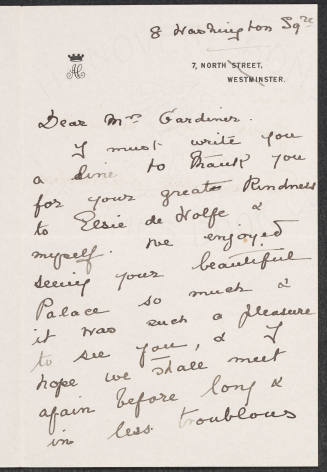 8 Washington Sqre
7, NORTH STREET,
WESTMINSTER.
Dear Mrs Gardiner.
I must write you
a line to thank you
for your great kindness
to Elsie de Wolfe &
myself. We enjoyed
seeing your beautiful
Palace so much &
it was such a pleasure
to see you, & I
hope we shall meet
again before long &
in less troublous